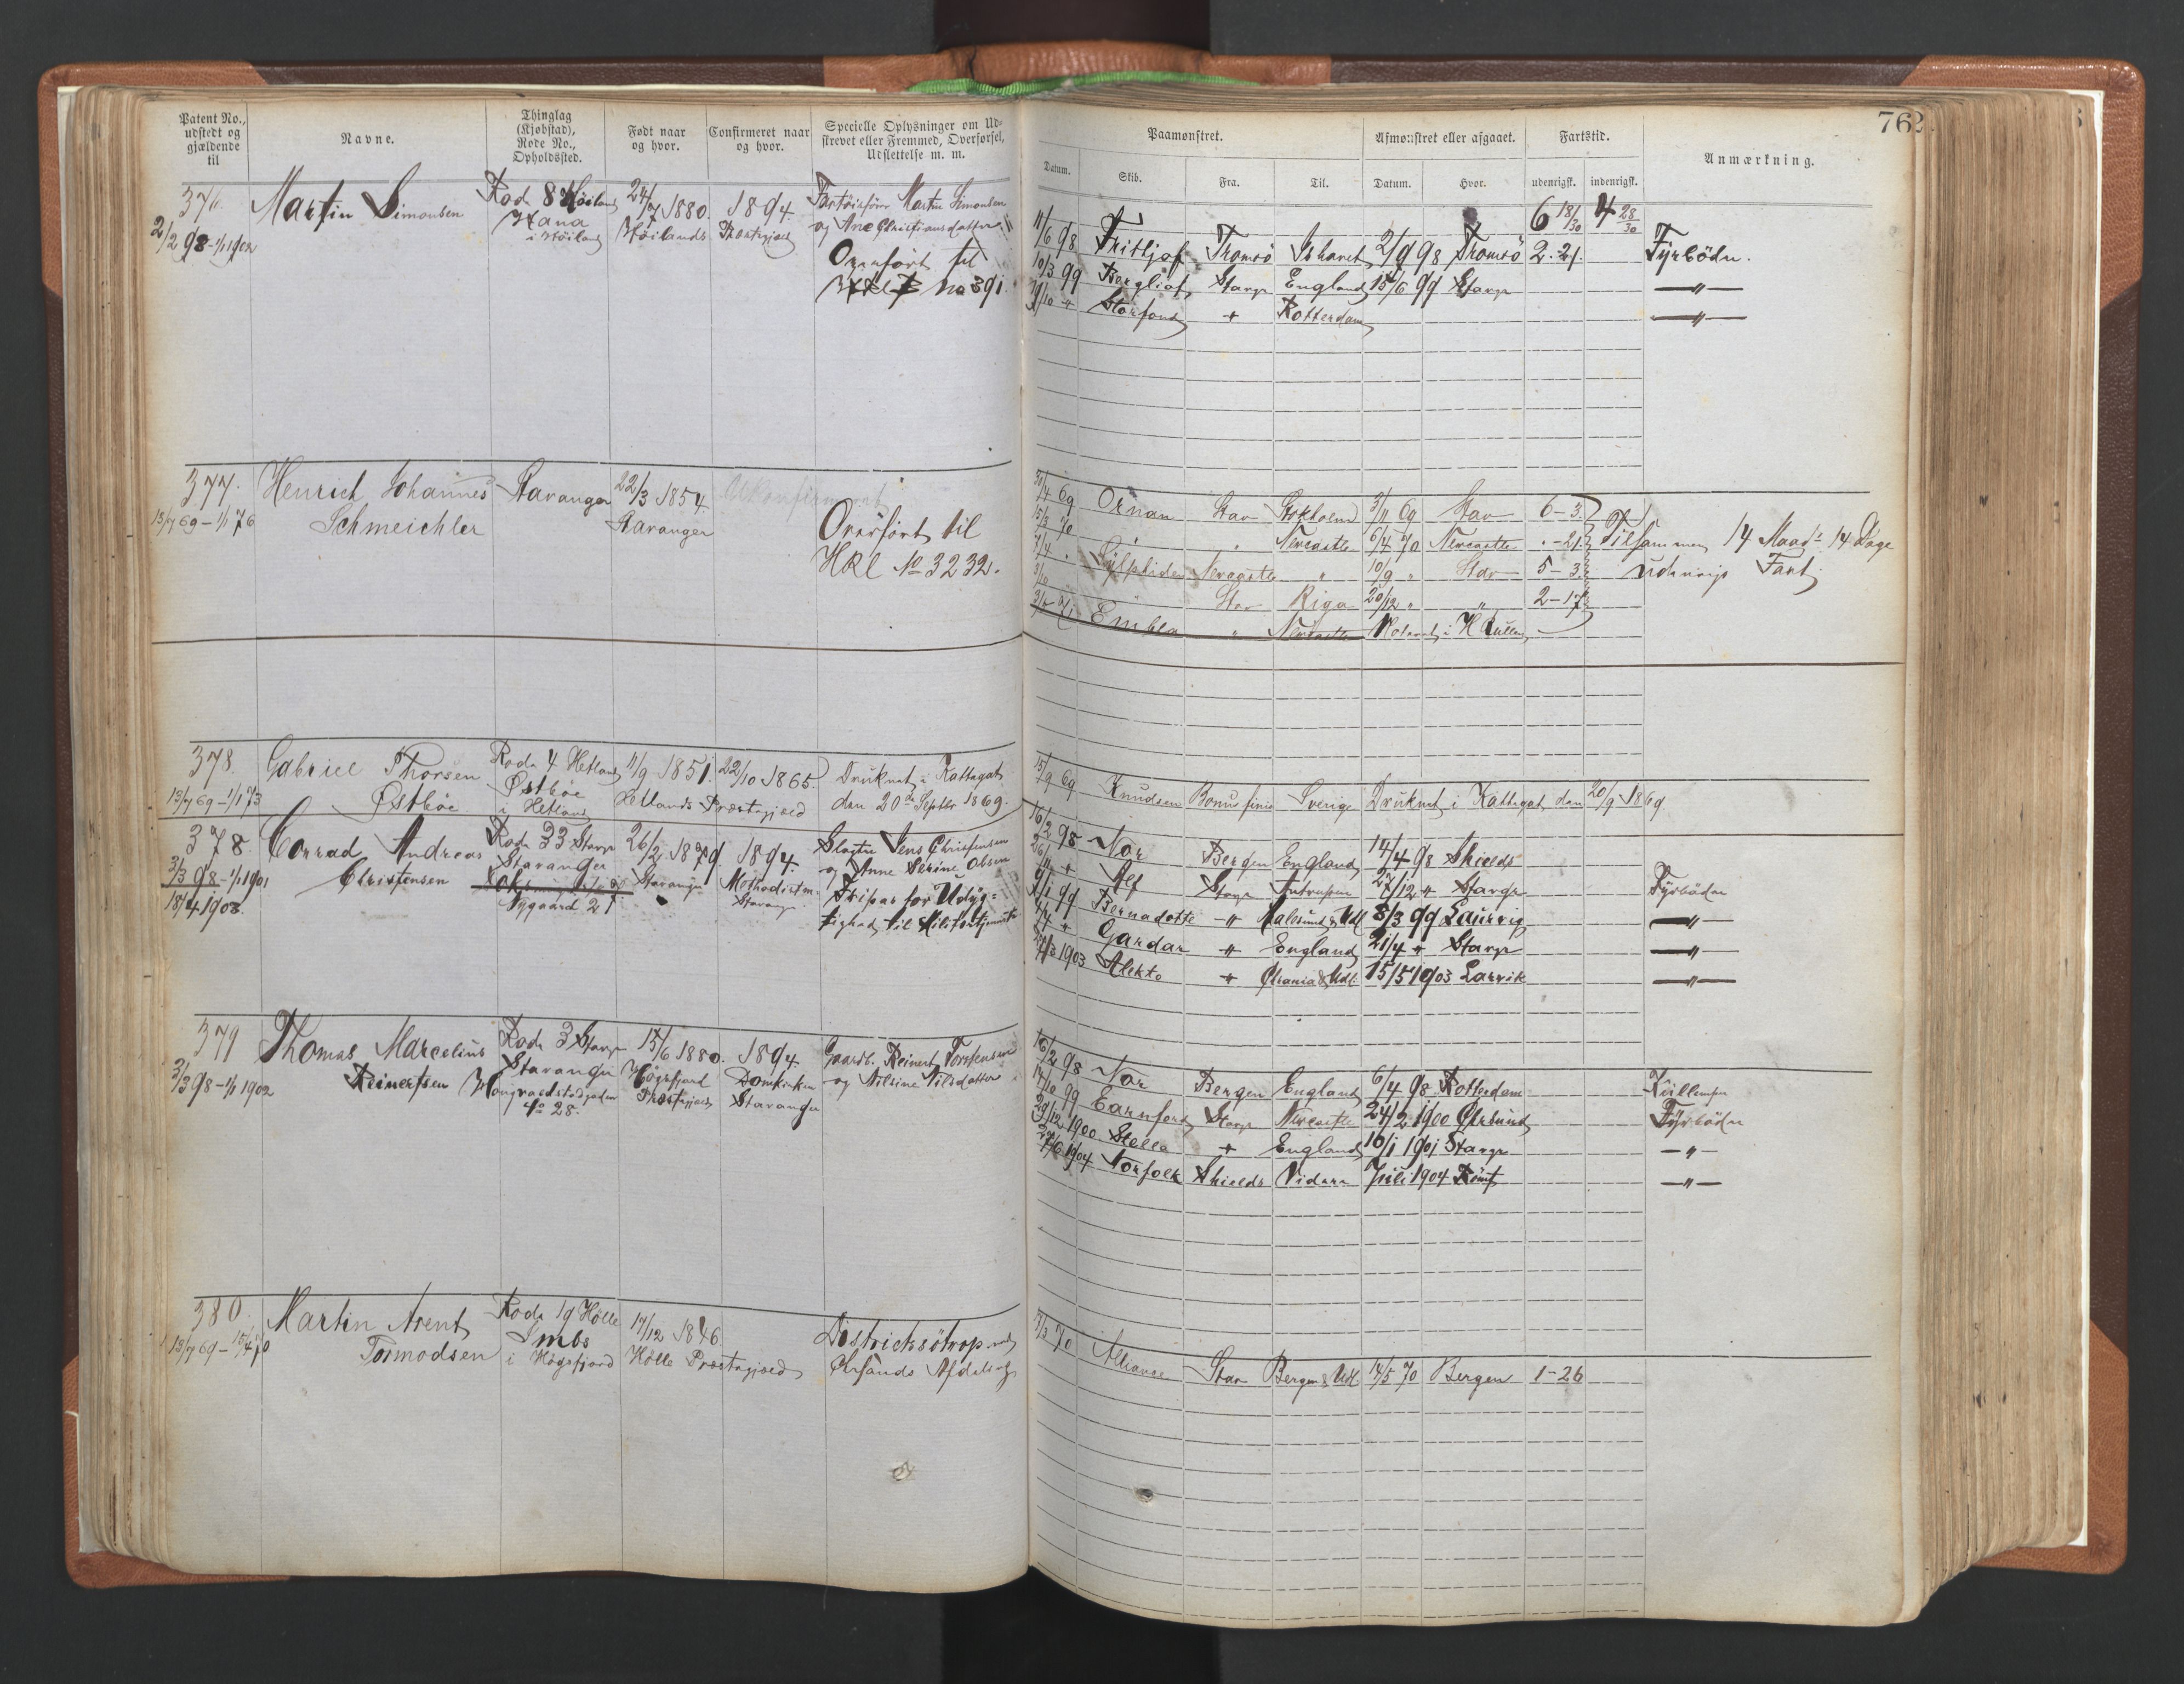 762
Patent No., udstedt og gjældende til
Navne.
Thinglag (Kjøbstad), Rode No., Opholdssted.
Født naar og hvor.
Confirmeret naar og hvor.
Specielle Oplysninger om Udskrevet eller Fremmed, Overførsel, Udslettelse m. m.
Paamønstret.
Afmønstret eller afgaaet.
Fartstid.
Anmærkning.
Datum. Skib. Fra. Til. Datum. Hvor. udenrigsk. indenrigsk.
376 Martin Simonsen Rode 8 Høiland 1880. 1894. Fartøiefører Martin Simonsen
2/2 98 - 1/1 1902 Hana i Høiland Høilands Præstegjæld og Ane Christiansdatter
Overført til
no 391
6 18/30 4 28/30
11/6 98 Fritjof Tromsø Ishavet 2/9 98 Tromsø 2. 21. Fyrbøder.
10/3 99 Bergliot Starge England 15/6 99 Starge — " —
Storfond + Rotterdam — " —
377. Henrich Johannes Stavanger 22/3 1854. Ukonfirmeret
13/7 69 - 1/1 76 Schmeichler Stavanger
Overført til
HRl No 3232.
69 Ornan Stav Stokholm 3/11 69 Stav 6-3
15/3 70 " " Newcastle 6/4 70 Newcastle " - 21
7/4 " Sylphiden Newcastle " 10/9 " Stav 5-3
Stav Riga 20/12 " " 2-17
Embla " Newcastle Noteret i H Rullen
Tilsammen 14 Maadr 14 Dage
udenrigs Fart.
378. Gabriel Thorsen Rode 4 Hetland 11/9 1851. 22/10 1865. Druknet i Kattegat
13/7 69 - 1/1 73 Østbøe Østbøe i Hetland Hetlands Præstegjæld den 20de Septbr 1869.
15/9 69 Knudsen Bonus finis Sverige Druknet i Kattegat den 20/9 1869
378. Conrad Andreas Rode 33 Starge 26/2 1879. 1894. Slagter Jens Christensen
3/3 98 - 1/1 1901 Christensen Stavanger Stavanger Methodistm. Stavanger og Anne Serine Olsen
18/4 1908. Nygaard 27 Fripas for Udyg-
tighed til Militærtjeneste
16/2 98 Nor Bergen England 14/4 98 Shields
Alf Starge Antwerpen 27/12 " Starge Fyrbøder
99 Bernadotte " Aalesund & Udl 8/3 99 Laurvig — " —
Gardar " England 21/4 " Starge — " —
1903 Alekto + Chrania & Udl. 15/5 1903 Larvik — " —
379 Thomas Marcelius Rode 3 Starge 15/6 1880. 1894. Gaardb. Reinert Torstensen
3/3 98 - 1/1 1902 Reinertsen Stavanger Høgsfjord Præstegjæld Domkirken Stavanger og Nilsine Nilsdatter
No 28.
16/2 98 Nor Bergen England 6/4 98 Rotterdam Kullemper
14/10 99 Earnford Starge Newcastle 24/2 1900 Chrsund Fyrbøder
29/12 1900 Stella + England 16/1 1901 Starge — " —
1904 Norfolk Shields Vidare Juli 1904 Rømt — " —
380. Martin Arent Rode 19 Hølle 17/12 1846. Distrieksøtrop ved
13/7 69 - 15/4 70 Tormodsen Imbs i Høgsfjord Hølle Præstegjæld Chrsands Afdeling
70 Alliance Stav Bergen & Udl 14/5 70 Bergen 1-26